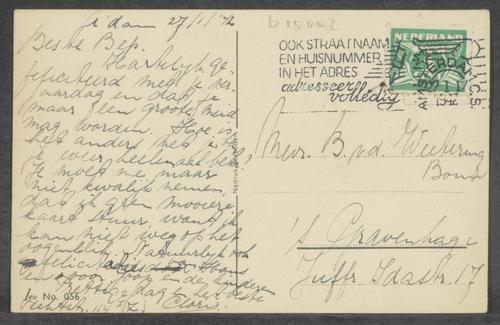 A'dam 27/1/42
Beste Bep.
Hartelijk ge-
feliciteerd met je ver-
jaardag en dat je
maar een groote meid
mag worden. Hoe is
het anders met je ben
je weer heelemaal beter.
Je moet me maar
niet kwalijk nemen,
dat ik geen mooiere
kaart stuur, want ik
kan niet weg op het
oogenblik. Natuurlijk ook
gefeliciteerd Hans
en Oom en de kinderen
Prettige dag en het beste
Clara
Jeu No. 056
Nadruk
OOK STRAATNAAM
EN HUISNUMMER
IN HET ADRES
adresseer
volledig
NEDERLAND
Mevr. B. v.d. Weetering
Boum
's Gravenhage
Juffr. Idastr. 17